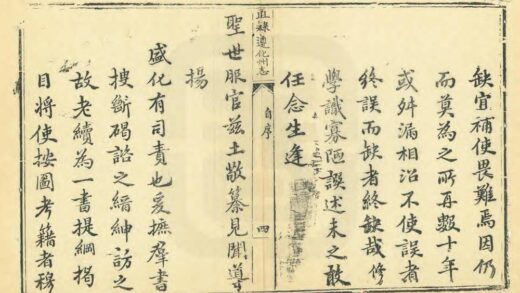 缺宜補使畏難焉因仍
而莫為之所再數十年
或舛漏相沿不使誤者
終誤而缺者終缺哉脩
學識寡陋譔述未之敢
任念生逢
直隸遵化州志
自序
四
聖世服官茲土敬纂見聞導
揚
盛化有司責也爰摭羣書
搜斷碣諮之縉紳訪之
故老續為一書提綱揭
目將使按圖考籍者穆